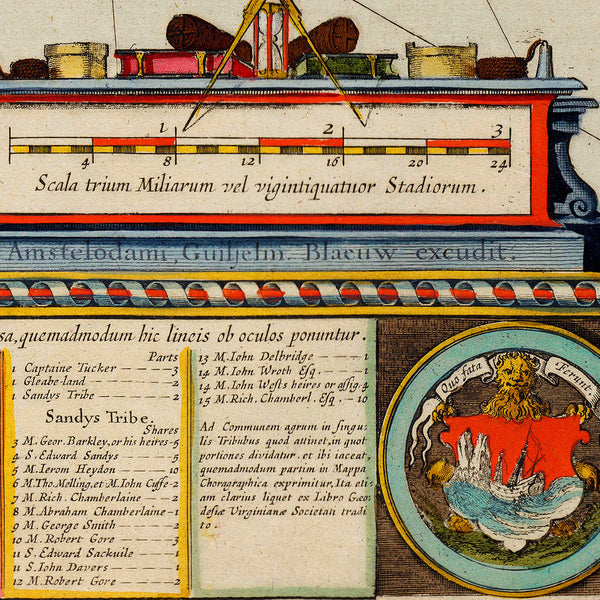 1 2 3
4 8 12 16 20 24
Scala trium Miliarum vel vigintiquatuor Stadiorum.
Amstelodami, Guiljelm. Blaeuw excudit
sa, quemadmodum hic lineis ob oculos ponuntur.
Parts
1 Captaine Tucker — 3
1 Gleabe-land — 2
1 Sandys Tribe — 2
Sandys Tribe.
Shares
3 M. Geor. Barkley, or his heires - 5
4 S. Edward Sandys — 5
5 M. Ierom Heydon — 10
6 M. Tho. Melling, et M. Iohn Cuffe - 2
7 M. Rich. Chamberlaine — 2
8 M. Abraham Chamberlaine - 1
9 M. George Smith — 2
10 M. Robert Gore — 3
11 S. Edward Sackuile — 1
11 S. Iohn Davers — 1
12 M. Robert Gore — 2
13 M. Iohn Delbridge — 1
14 M. Iohn Wroth Esq. — 1
14 M. Iohn Wests heires or assig. 4
15 M. Rich. Chamberl. Esq. - 10
Ad Communem agrum in singu
lis Tribubus quod attinet, in quot
portiones dividatur, et ibi iaceat,
quemadmodum partim in Mappa
Chorographica exprimitur, Ita eti-
am clarius liquet ex Libro Geo
desiæ Virginianæ Societati tradi
to.
Quo fata Ferunt.